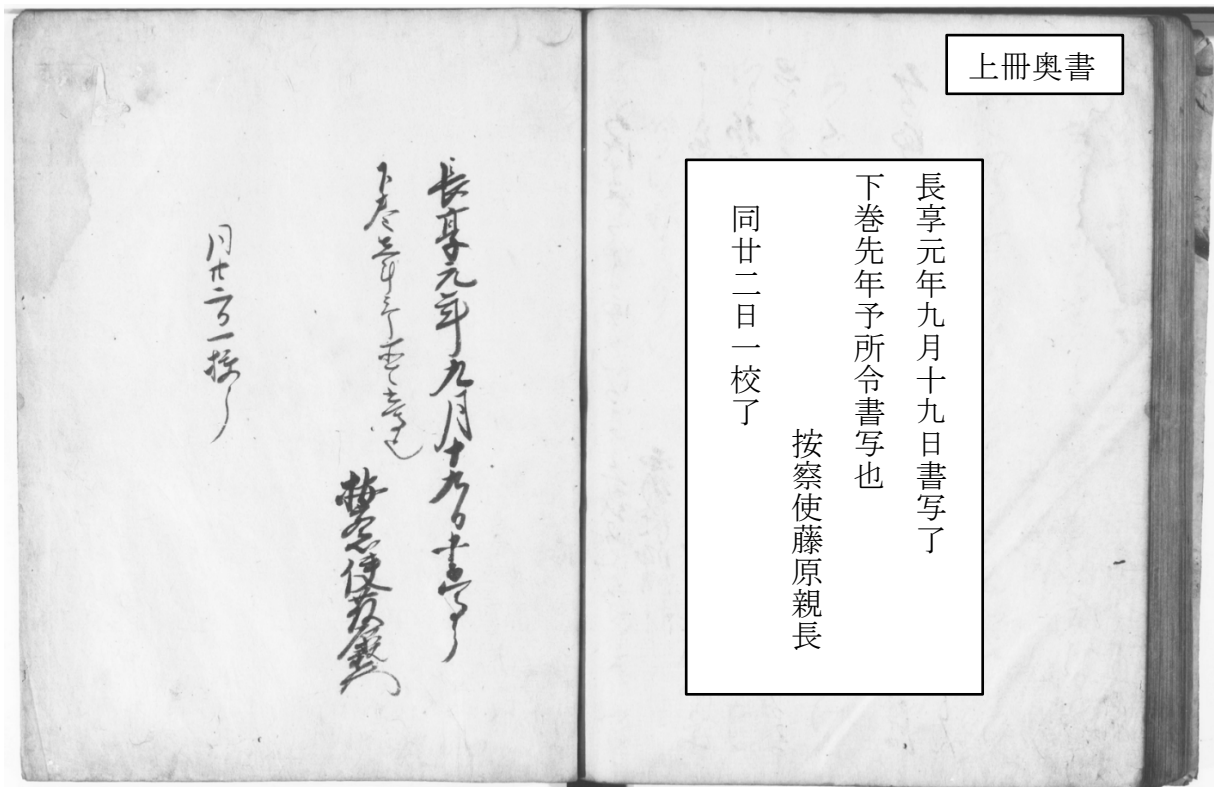 上冊奥書
長享元年九月十九日書写了
下巻先年予所令書写也
按察使藤原親長
同廿二日一校了
長享元年九月十九日書写了
下巻先年予所令書写也
按察使藤原親長
同廿二日一校了